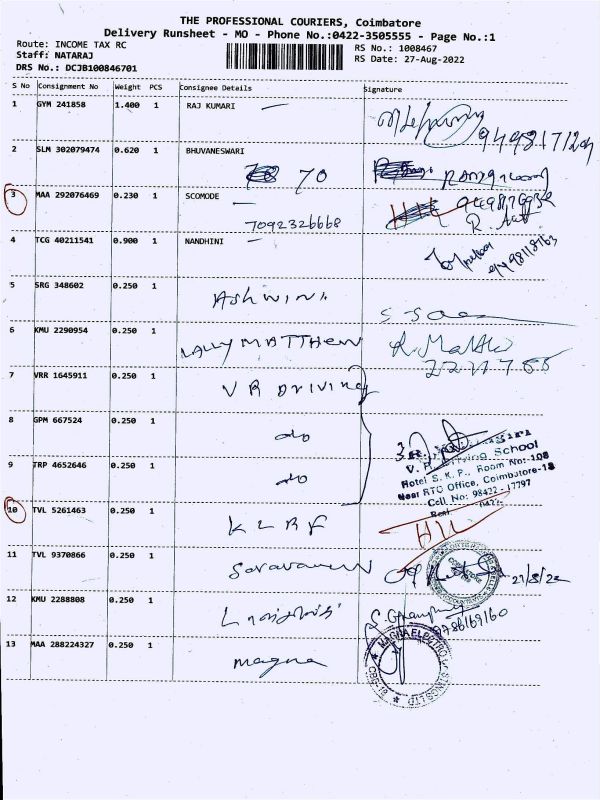 THE PROFESSIONAL COURIERS, Coimbatore
Delivery Runsheet - MO - Phone No.:0422-3505555 - Page No.:1
Route: INCOME TAX RC
RS No.: 1008467
Staff: NATARAJ
RS Date: 27-Aug-2022
DRS No.: DCJB100846701
S No Consignment No Weight PCS Consignee Details Signature
1 GYM 241858 1.400 1 RAJ KUMARI
2 SLM 302079474 0.620 1 BHUVANESWARI
70
3 MAA 292076469 0.230 1 SCOMODE
7092326668
4 TCG 40211541 0.900 1 NANDHINI
5 SRG 348602 0.250 1 Ashwini
6 KMU 2290954 0.250 1 LALLY MATTHEW
7 VRR 1645911 0.250 1 VR Driving
8 GPM 667524 0.250 1 do
9 TRP 4652646 0.250 1 do
V. R. Driving School
Hotel S. K. P., Room No:-108
Near RTO Office, Coimbatore-18
Cell No: 98422-17797
10 TVL 5261463 0.250 1 KLRF
11 TVL 9370866 0.250 1 Saravanan
12 KMU 2288808 0.250 1
9786169160
13 MAA 288224327 0.250 1 magna
MAGNA ELECTRO CASTINGS LTD
CBE-18